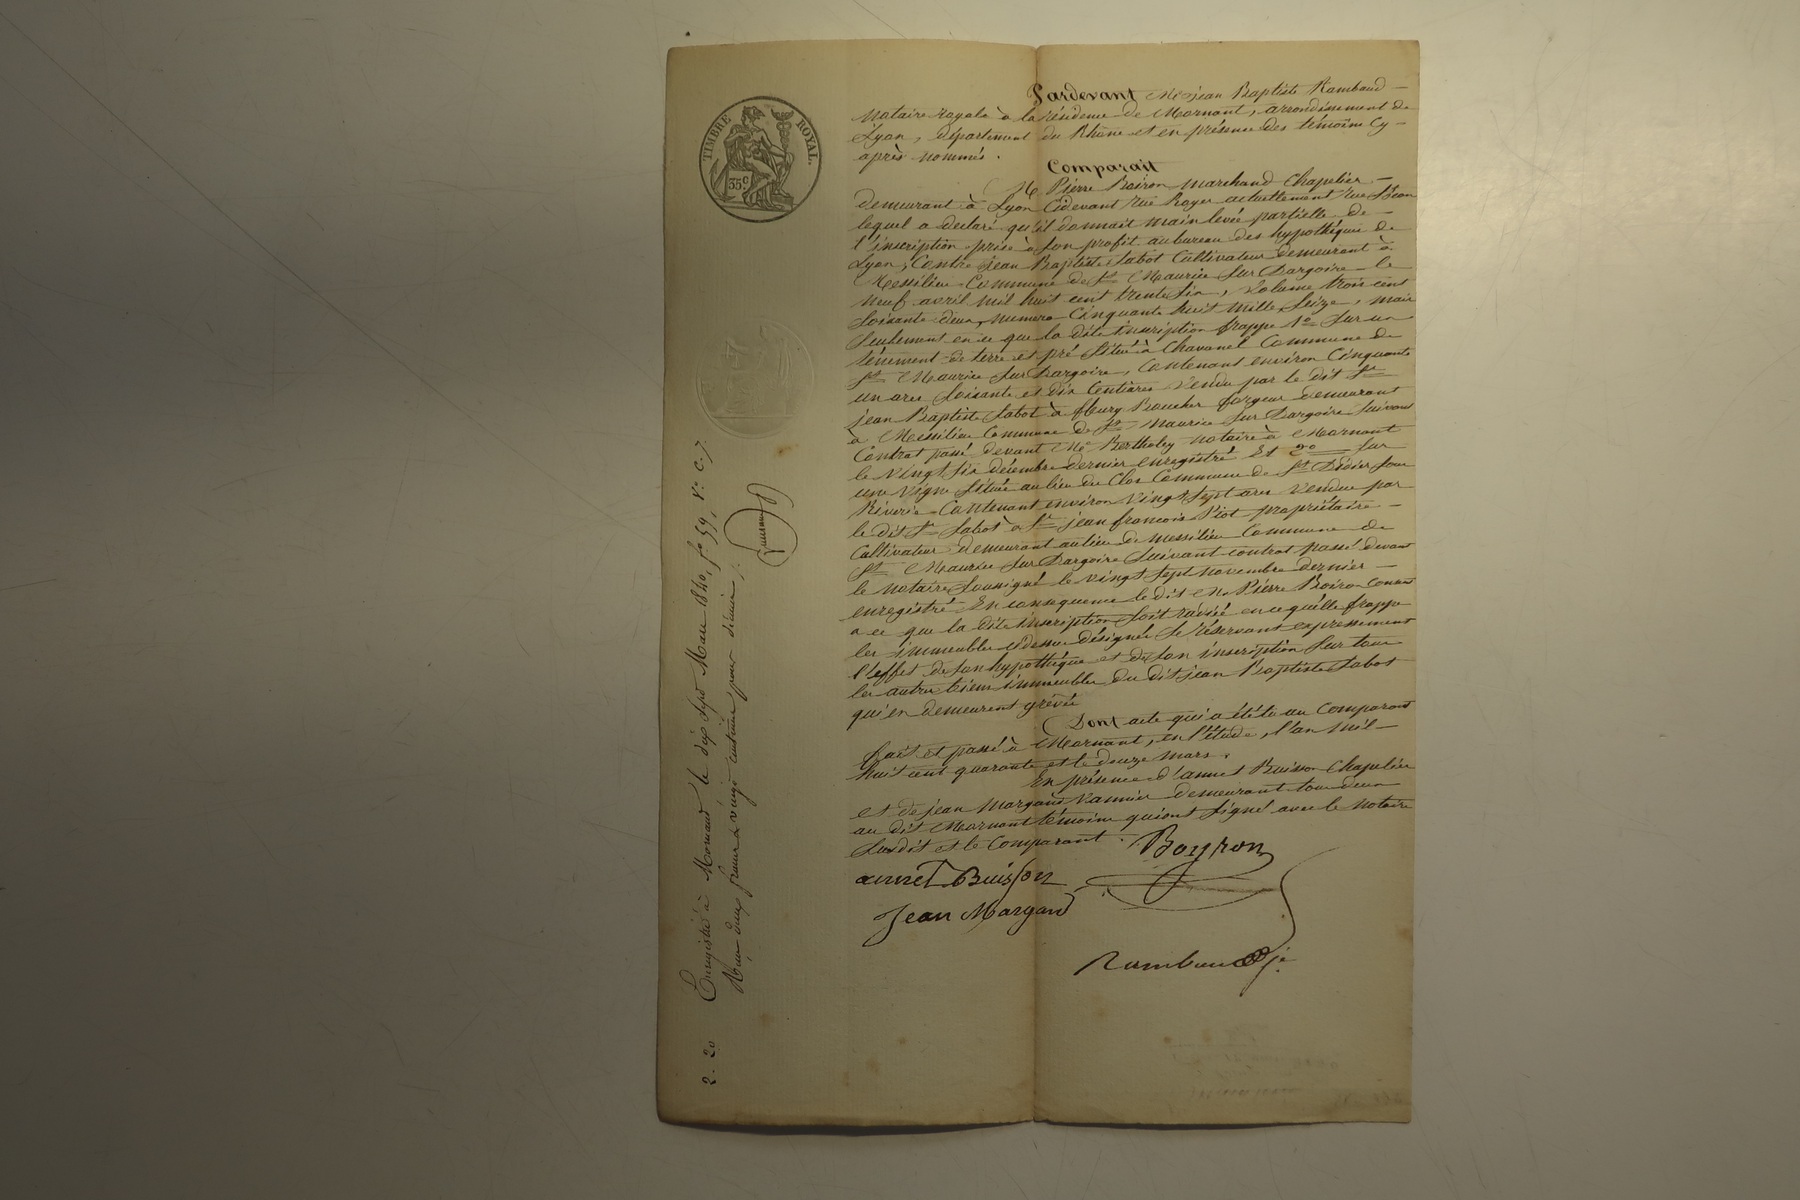 TIMBRE ROYAL.
35 c.
Pardevant Me jean Baptiste Rambaud
notaire Royale à la résidence de Mornant, arrondissement de
Lyon, département du Rhône et en présence des témoins Cy-
après nommés.
Comparait
Mr Pierre Boiron marchand Chapelier
demeurant à Lyon Cidevant rue Royer actuellement rue St Jean
lequel a declaré qu'il donnait main levée partielle de
l'inscription prise à son profit au bureau des hypothéques de
Lyon, Contre jean Baptiste Sabot Cultivateur demeurant à
Messilieu Commune de St Maurice sur Dargoire le
neuf avril mil huit cent trente six, volume trois cent
soixante deux, numero Cinquante huit mille seize, mais
seulement en ce que la dite inscription frappe 1o sur un
ténement de terre et pré situé à Chavanel Commune de
St Maurice sur Dargoire, Contenant environ Cinquante
un ares soixante et dix Centiares vendu par le dit Sr
jean Baptiste Sabot à fleury Boucher forgeur demeurant
à Messilieu Commune de St Maurice sur Dargoire suivant
Contrat passé devant Me Bertholey notaire à Mornant
le vingt six décembre dernier enregistré Et 2o sur
une vigne située au lieu du Clos Commune de St Didier sous
Riverie Contenant environ vingt sept ares vendue par
le dit Sr Sabot à Sr jean francois Piot propriétaire
Cultivateur demeurant au lieu de messilieu Commune de
St Maurice sur Dargoire suivant contrat passé devant
le notaire soussigné le vingt sept novembre dernier
enregistré En consequence le dit Mr Pierre Boiron consent
a ce que la dite inscription soit radiée en ce qu'elle frappe
les immeubles cidessus désignés se réservant expressement
l'effet de son hypothéque et de son inscription sur tous
les autres biens immeubles du dit jean Baptiste Sabot
qui en demeurent grévés
Dont acte qui a été lu au Comparant
fait et passé à Mornant, en l'étude, l'an mil
huit cent quarante et le douze mars.
En présence d'annet Buisson Chapelier
et de jean Margand vannier demeurant tous deux
au dit Mornant témoins qui ont signé avec le notaire
susdit et le Comparant.
Boyron
annet Buisson
Jean Margand
Rambaud je
Enregistré à Mornand le dix sept Mars 1840, fo 59, Vo c. 7
Reçu deux francs & vingt centimes pour décime
2. 20